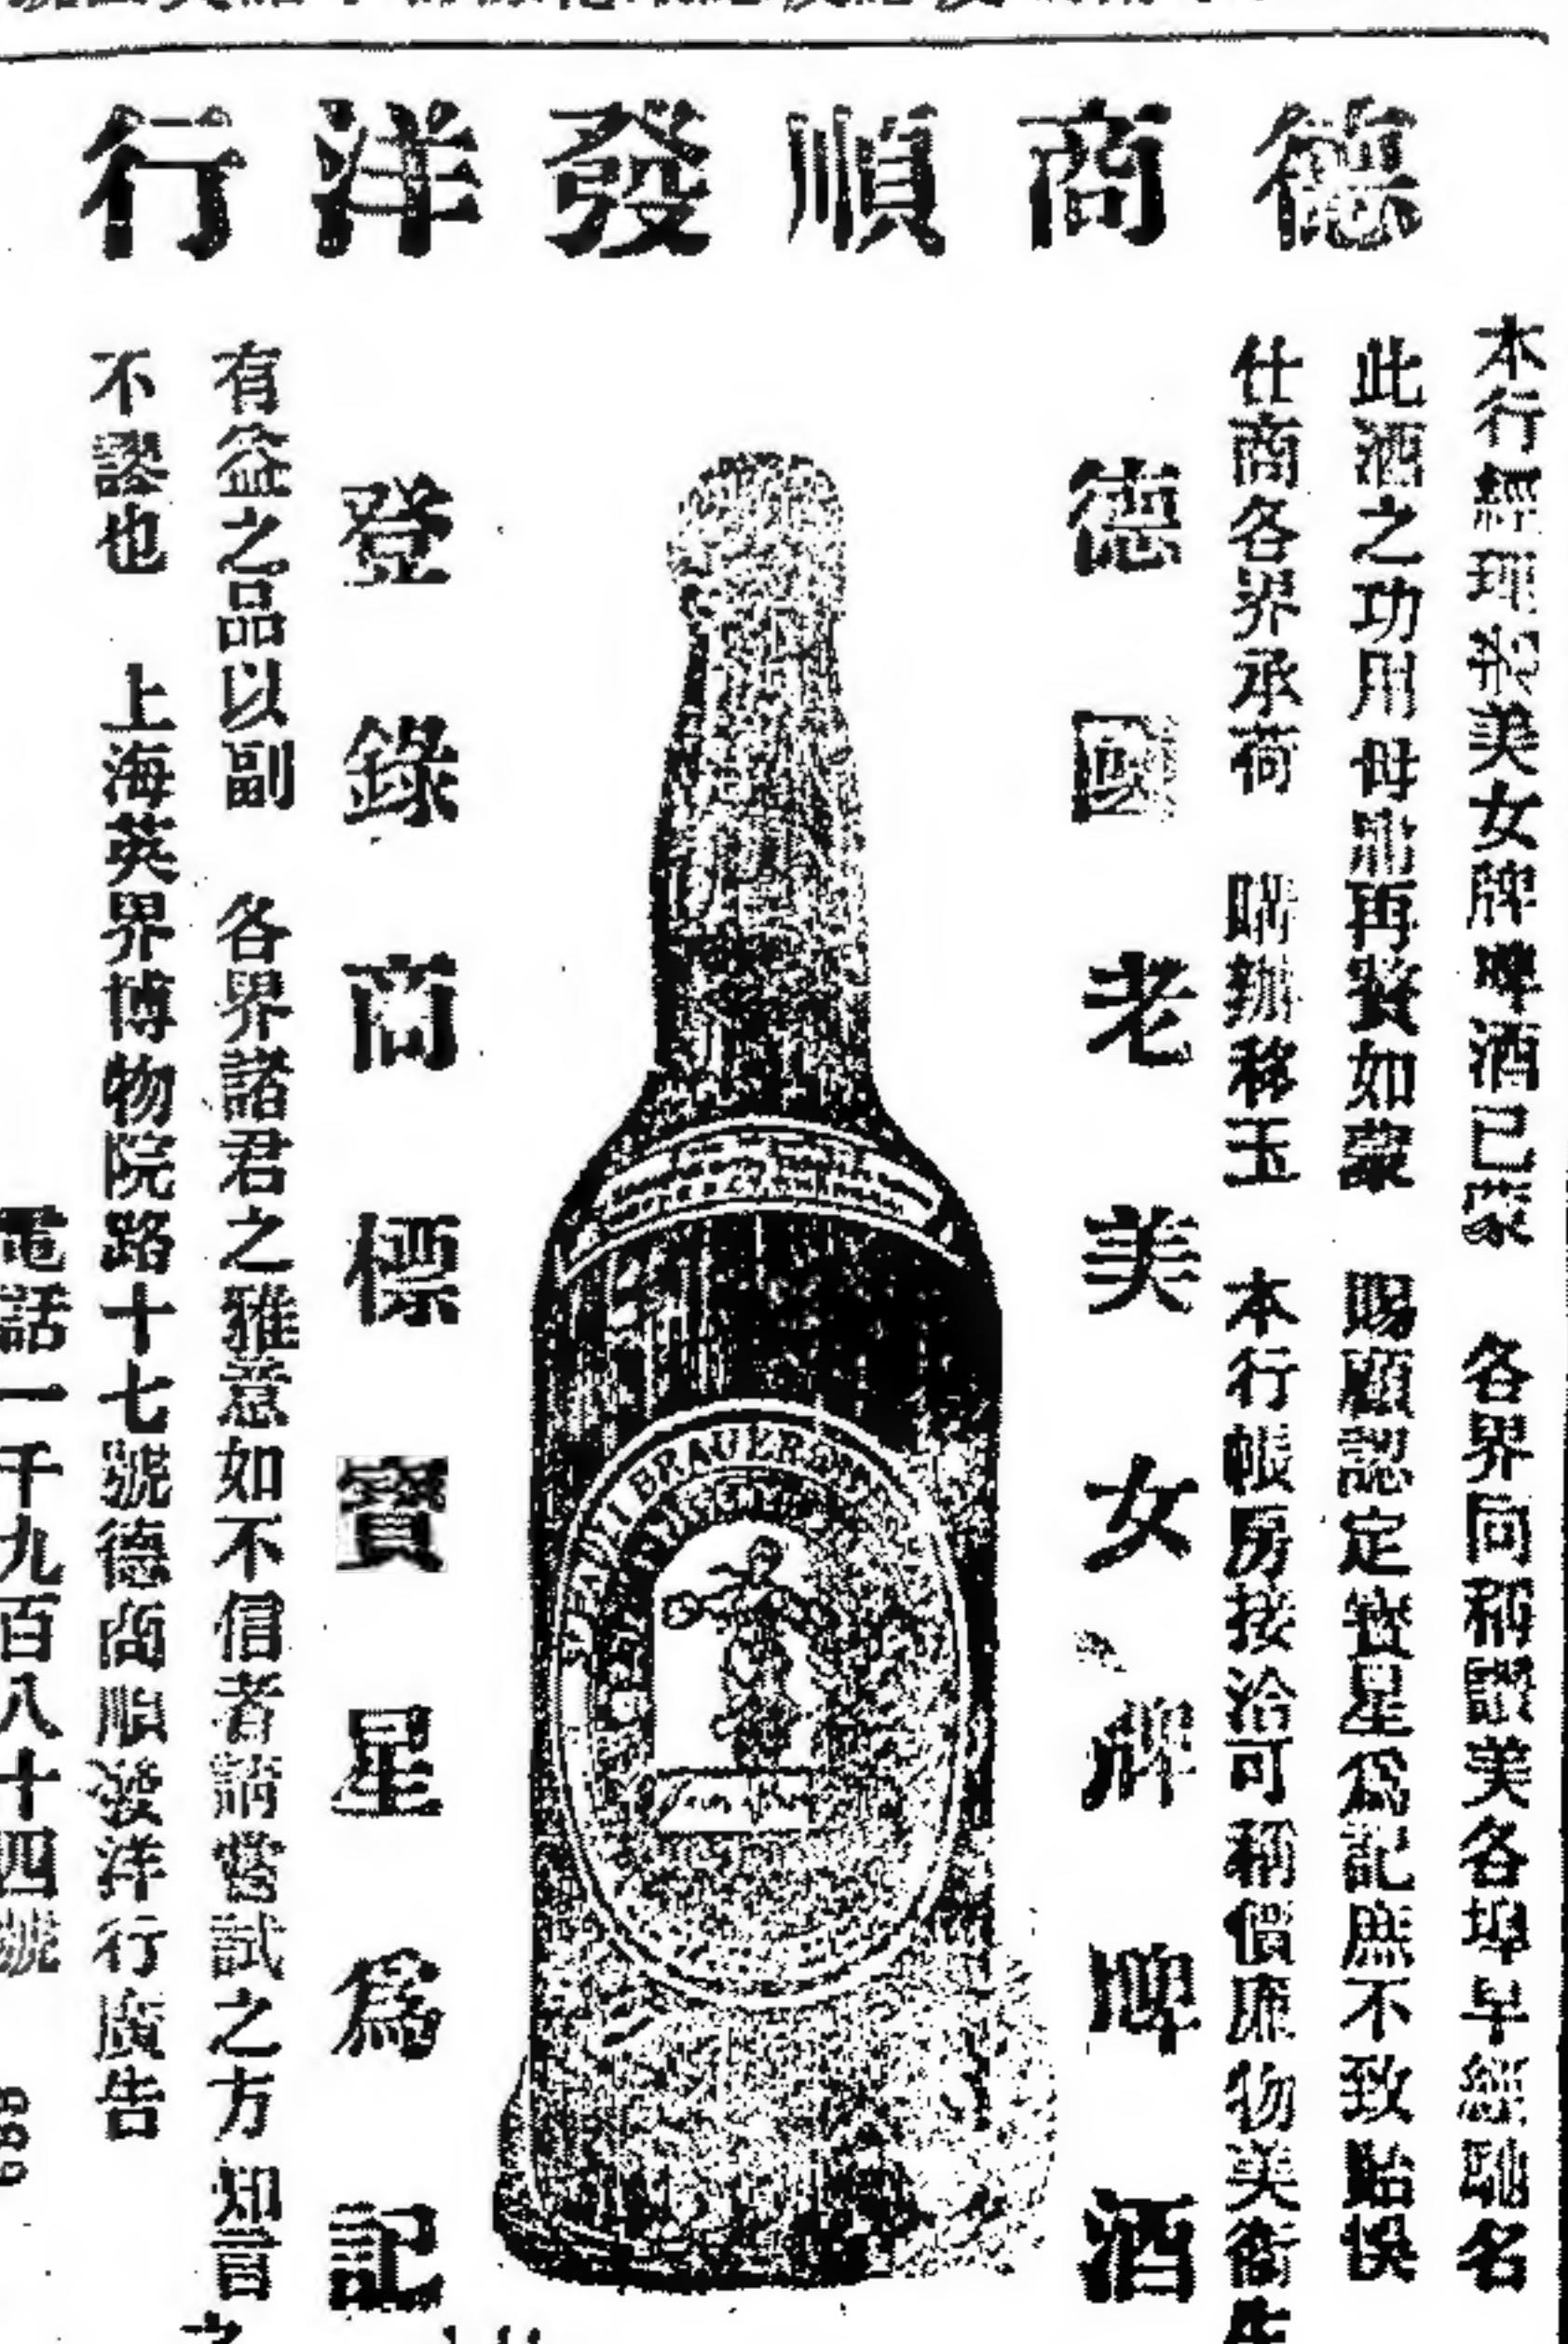 德商順發洋行
本行經理彩美女牌啤酒已蒙 各界同稱讚美各埠早經馳名
此酒之功用毋庸再贅如蒙 賜顧認定寶星為記庶不致貽悞
仕商各界承荷 購辦移玉 本行帳房接洽可稱價廉物美衛生
德國老美女牌啤酒
登錄商標寶星為記
有益之品以副 各界諸君之雅意如不信者請嘗試之方知言之
不謬也 上海英界博物院路十七號德商順發洋行廣告
電話一千九百八十四號